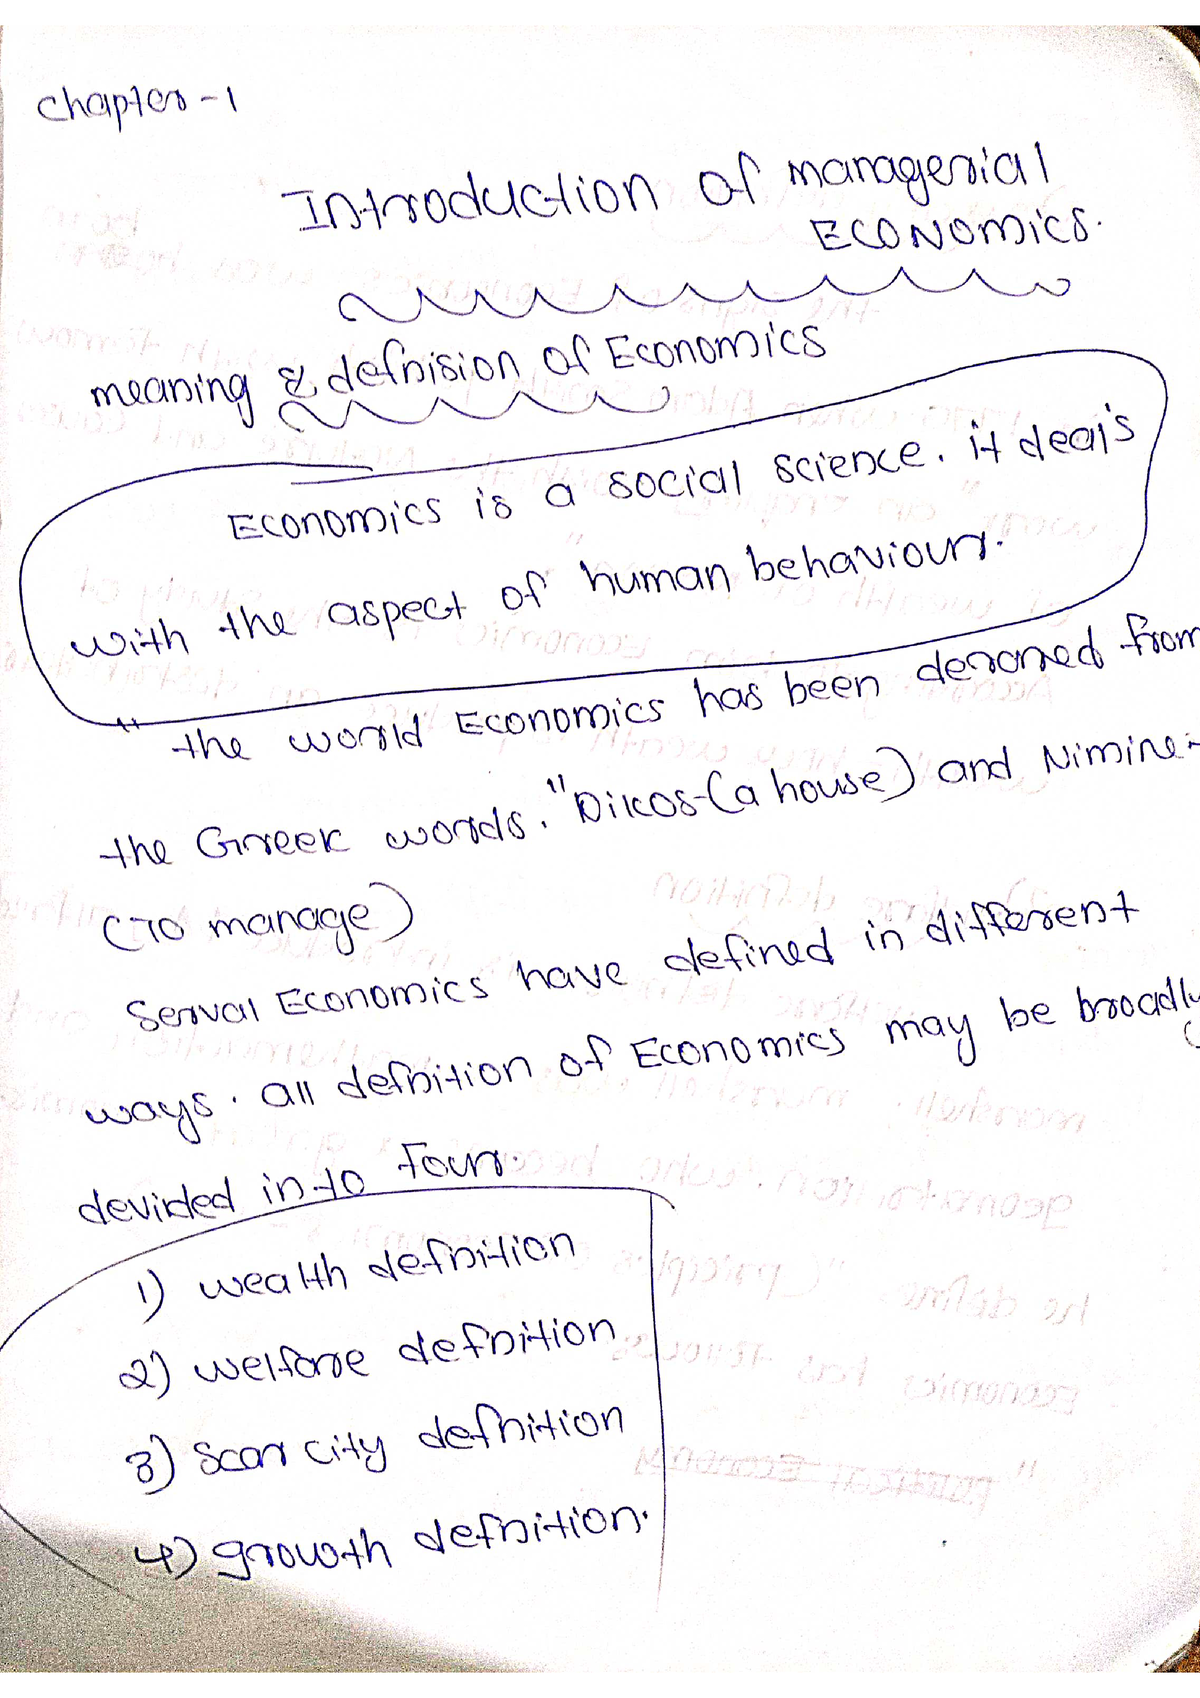 Chapter - 1
Introduction of managerial
ECONOMICS.
meaning & defnision of Economics
Economics is a social science. it deals
with the aspect of human behaviour.
"the world Economics has been derared from
the Greek words. "Oikos-(a house) and Nimine-
(To manage)
Serval Economics have defined in different
ways. all defnition of Economics may be broadly
devided in to four.
1) wealth defnition
2) welfare defnition
3) Scarcity defnition
4) growth defnition.